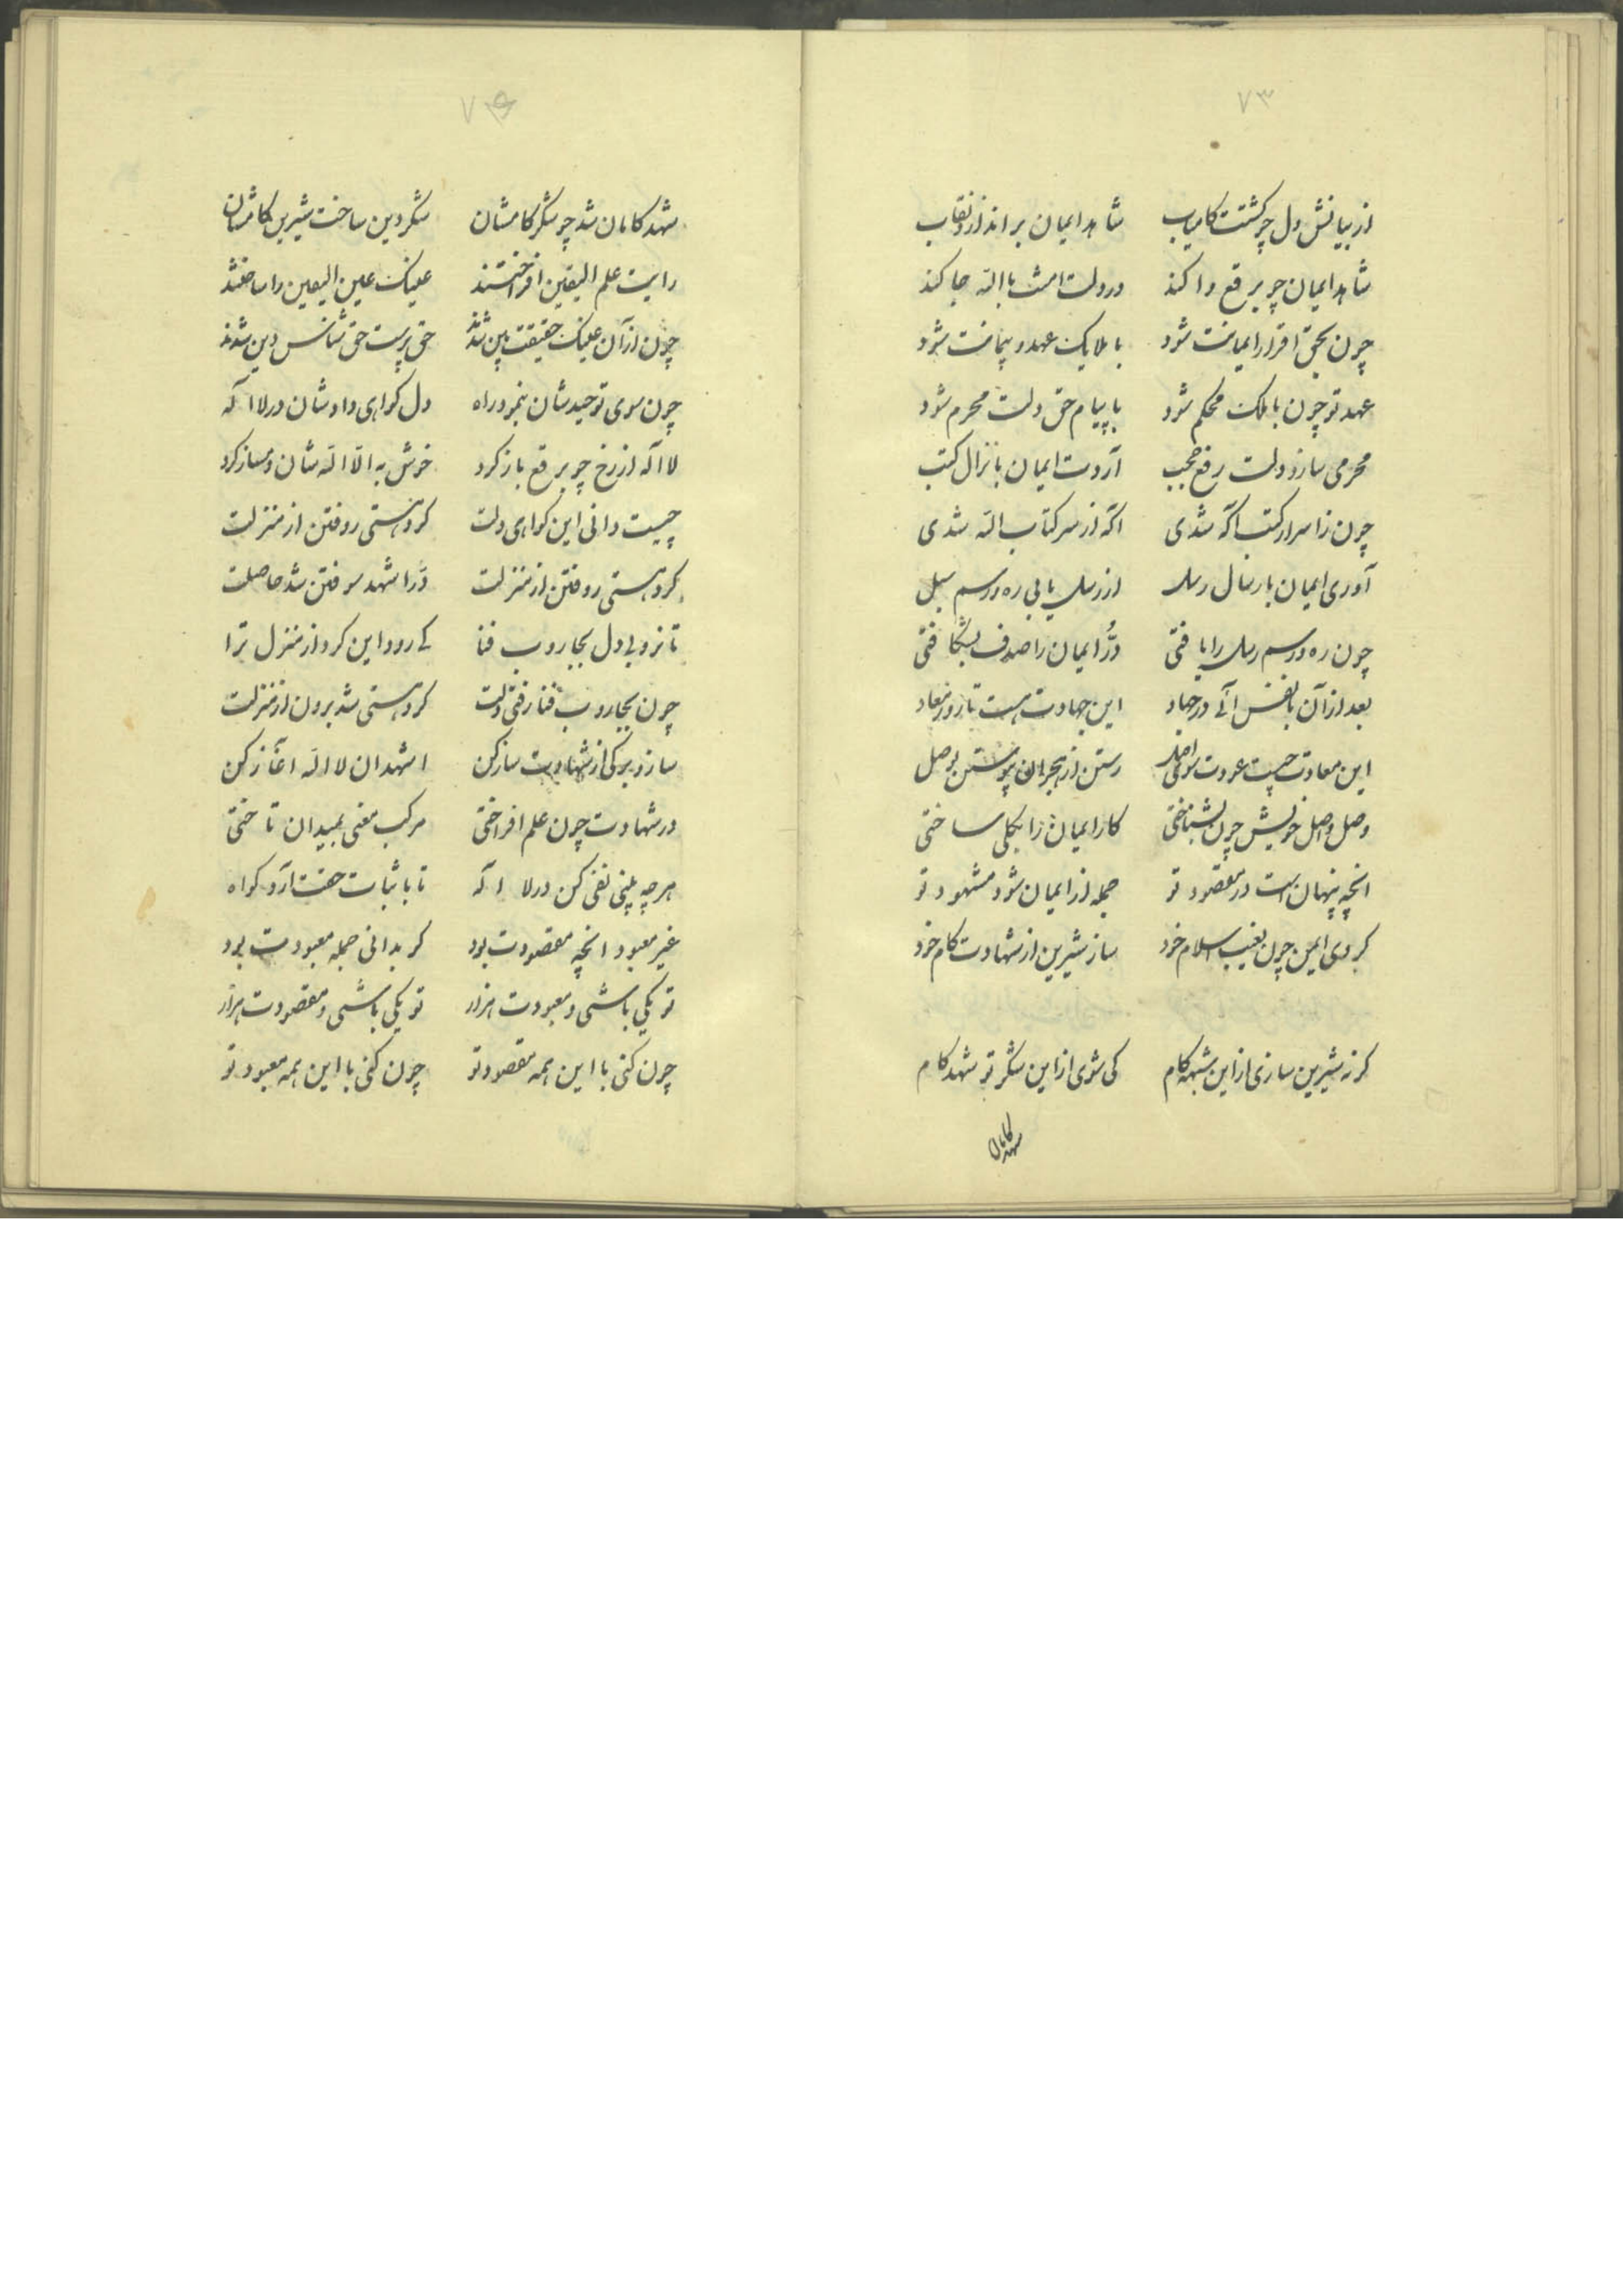 ۷۳
از بیانش دل چو کشتت کامیاب شاهد ایمان براندازد نقاب
شاهد ایمان چو برقع وا کند در دلت امنت بالله جا کند
چون بحق اقرار ایمانت شود با ملایک عهد و پیمانت شود
عهد تو چون با ملک محکم شود با پیام حق دلت محرم شود
محرمی سازد دلت رفع حجب آردت ایمان بانزال کتب
چون ز اسرار کتب اکه شدی اکه از سر کتاب الله شدی
آوری ایمان بارسال رسل از رسل یابی ره و رسم سبل
چون ره و رسم رسل را یافتی دُرّ ایمان را صدف بشکافتی
بعد از آن با نفس آئی در جهاد این جهادت هست تا روز معاد
این معادت چیست عودت سوی اصل رستن از هجران پیوستن بوصل
وصل و اصل خویش چون بشناختی کار ایمان را بکلی ساختی
انچه پنهان است در مقصود تو جمله از ایمان شود مشهود تو
کردی ایمن چون بغیب اسلام خود ساز شیرین از شهادت کام خود
کرنه شیرین سازی از این شهد کام کی شوی از این شکر تو شهد کام
شهد کامان
۷۴
شهد کامان شد چو شکر کامشان شکر دین ساخت شیرین کامشان
رایت علم الیقین افراختند عینک عین الیقین را ساختند
چون از آن عینک حقیقت بین شدند حق پرست حق شناس دین شدند
چون سوی توحیدشان بنمود راه دل کواهی دادشان در لا اله
لا اله از رخ چو برقع باز کرد خوش به الا الله شان دمساز کرد
چیست دانی این کواهی دلت کرد هستی روفتن از منزلت
کرد هستی روفتن از منزلت دُرّ اشهد سوفتن شد حاصلت
تا نروبی دل بجاروب فنا کی رود این کرد از منزل ترا
چون بجاروب فنا رفتی دلت کرد هستی شد برون از منزلت
ساز و برکی از شهادت ساز کن اشهد ان لا اله اغاز کن
در شهادت چون علم افراختی مرکب معنی بمیدان تاختی
هرچه بینی نفی کن در لا اله تا باثبات حقت آرد کواه
غیر معبود انچه مقصودت بود کر بدانی جمله معبودت بود
تو یکی باشی و معبودت هزار تو یکی باشی و مقصودت هزار
چون کنی با این همه مقصود تو چون کنی با این همه معبود تو